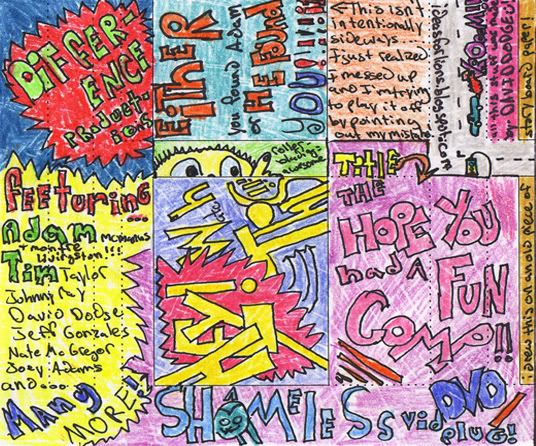 DIFFER-
ENCE
PRODUCT-
IONS
EITHER
you found Adam
or HE FOUND
YOU!!!!!
<This isn't
intentionally
sideways...
I just realized
I messed up
and I'm trying
to play it off
by pointing
out my mistake.
ideasfortions.blogspot.com
by DAVID DODGE!!
story board paper!
feeturing...
Adam McManus
+ monte
livingston!!!
Tim Taylor
Johnny Ray
David Dodge
Jeff Gonzales
Nate McGregor
Joey Adams
and....
Many
MORE!!
Why
Heyii
Tim
TITLE
THE
HOPE YOU
had A FUN
COMP!!
i drew this on an old piece of
SHAMELESS vid DVD
plug!